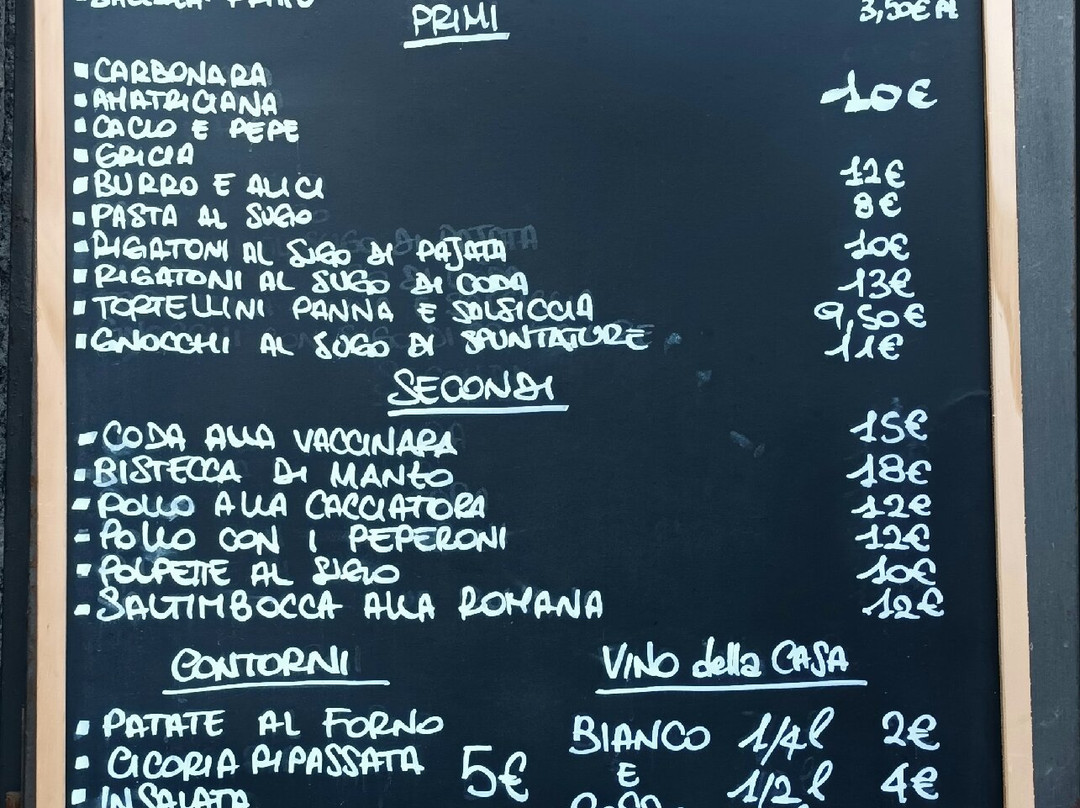 3,50€
PRIMI
▪CARBONARA
▪AMATRICIANA 10€
▪CACIO E PEPE
▪GRICIA
▪BURRO E ALICI 12€
▪PASTA AL SUGO 8€
▪RIGATONI AL SUGO DI PAJATA 10€
▪RIGATONI AL SUGO DI CODA 13€
▪TORTELLINI PANNA E SALSICCIA 9,50€
▪GNOCCHI AL SUGO DI SPUNTATURE 11€
SECONDI
▪CODA ALLA VACCINARA 15€
▪BISTECCA DI MANZO 18€
▪POLLO ALLA CACCIATORA 12€
▪POLLO CON I PEPERONI 12€
▪POLPETTE AL SUGO 10€
▪SALTIMBOCCA ALLA ROMANA 12€
CONTORNI
▪PATATE AL FORNO
▪CICORIA RIPASSATA 5€
▪INSALATA
VINO della CASA
BIANCO 1/4 l 2€
E 1/2 l 4€